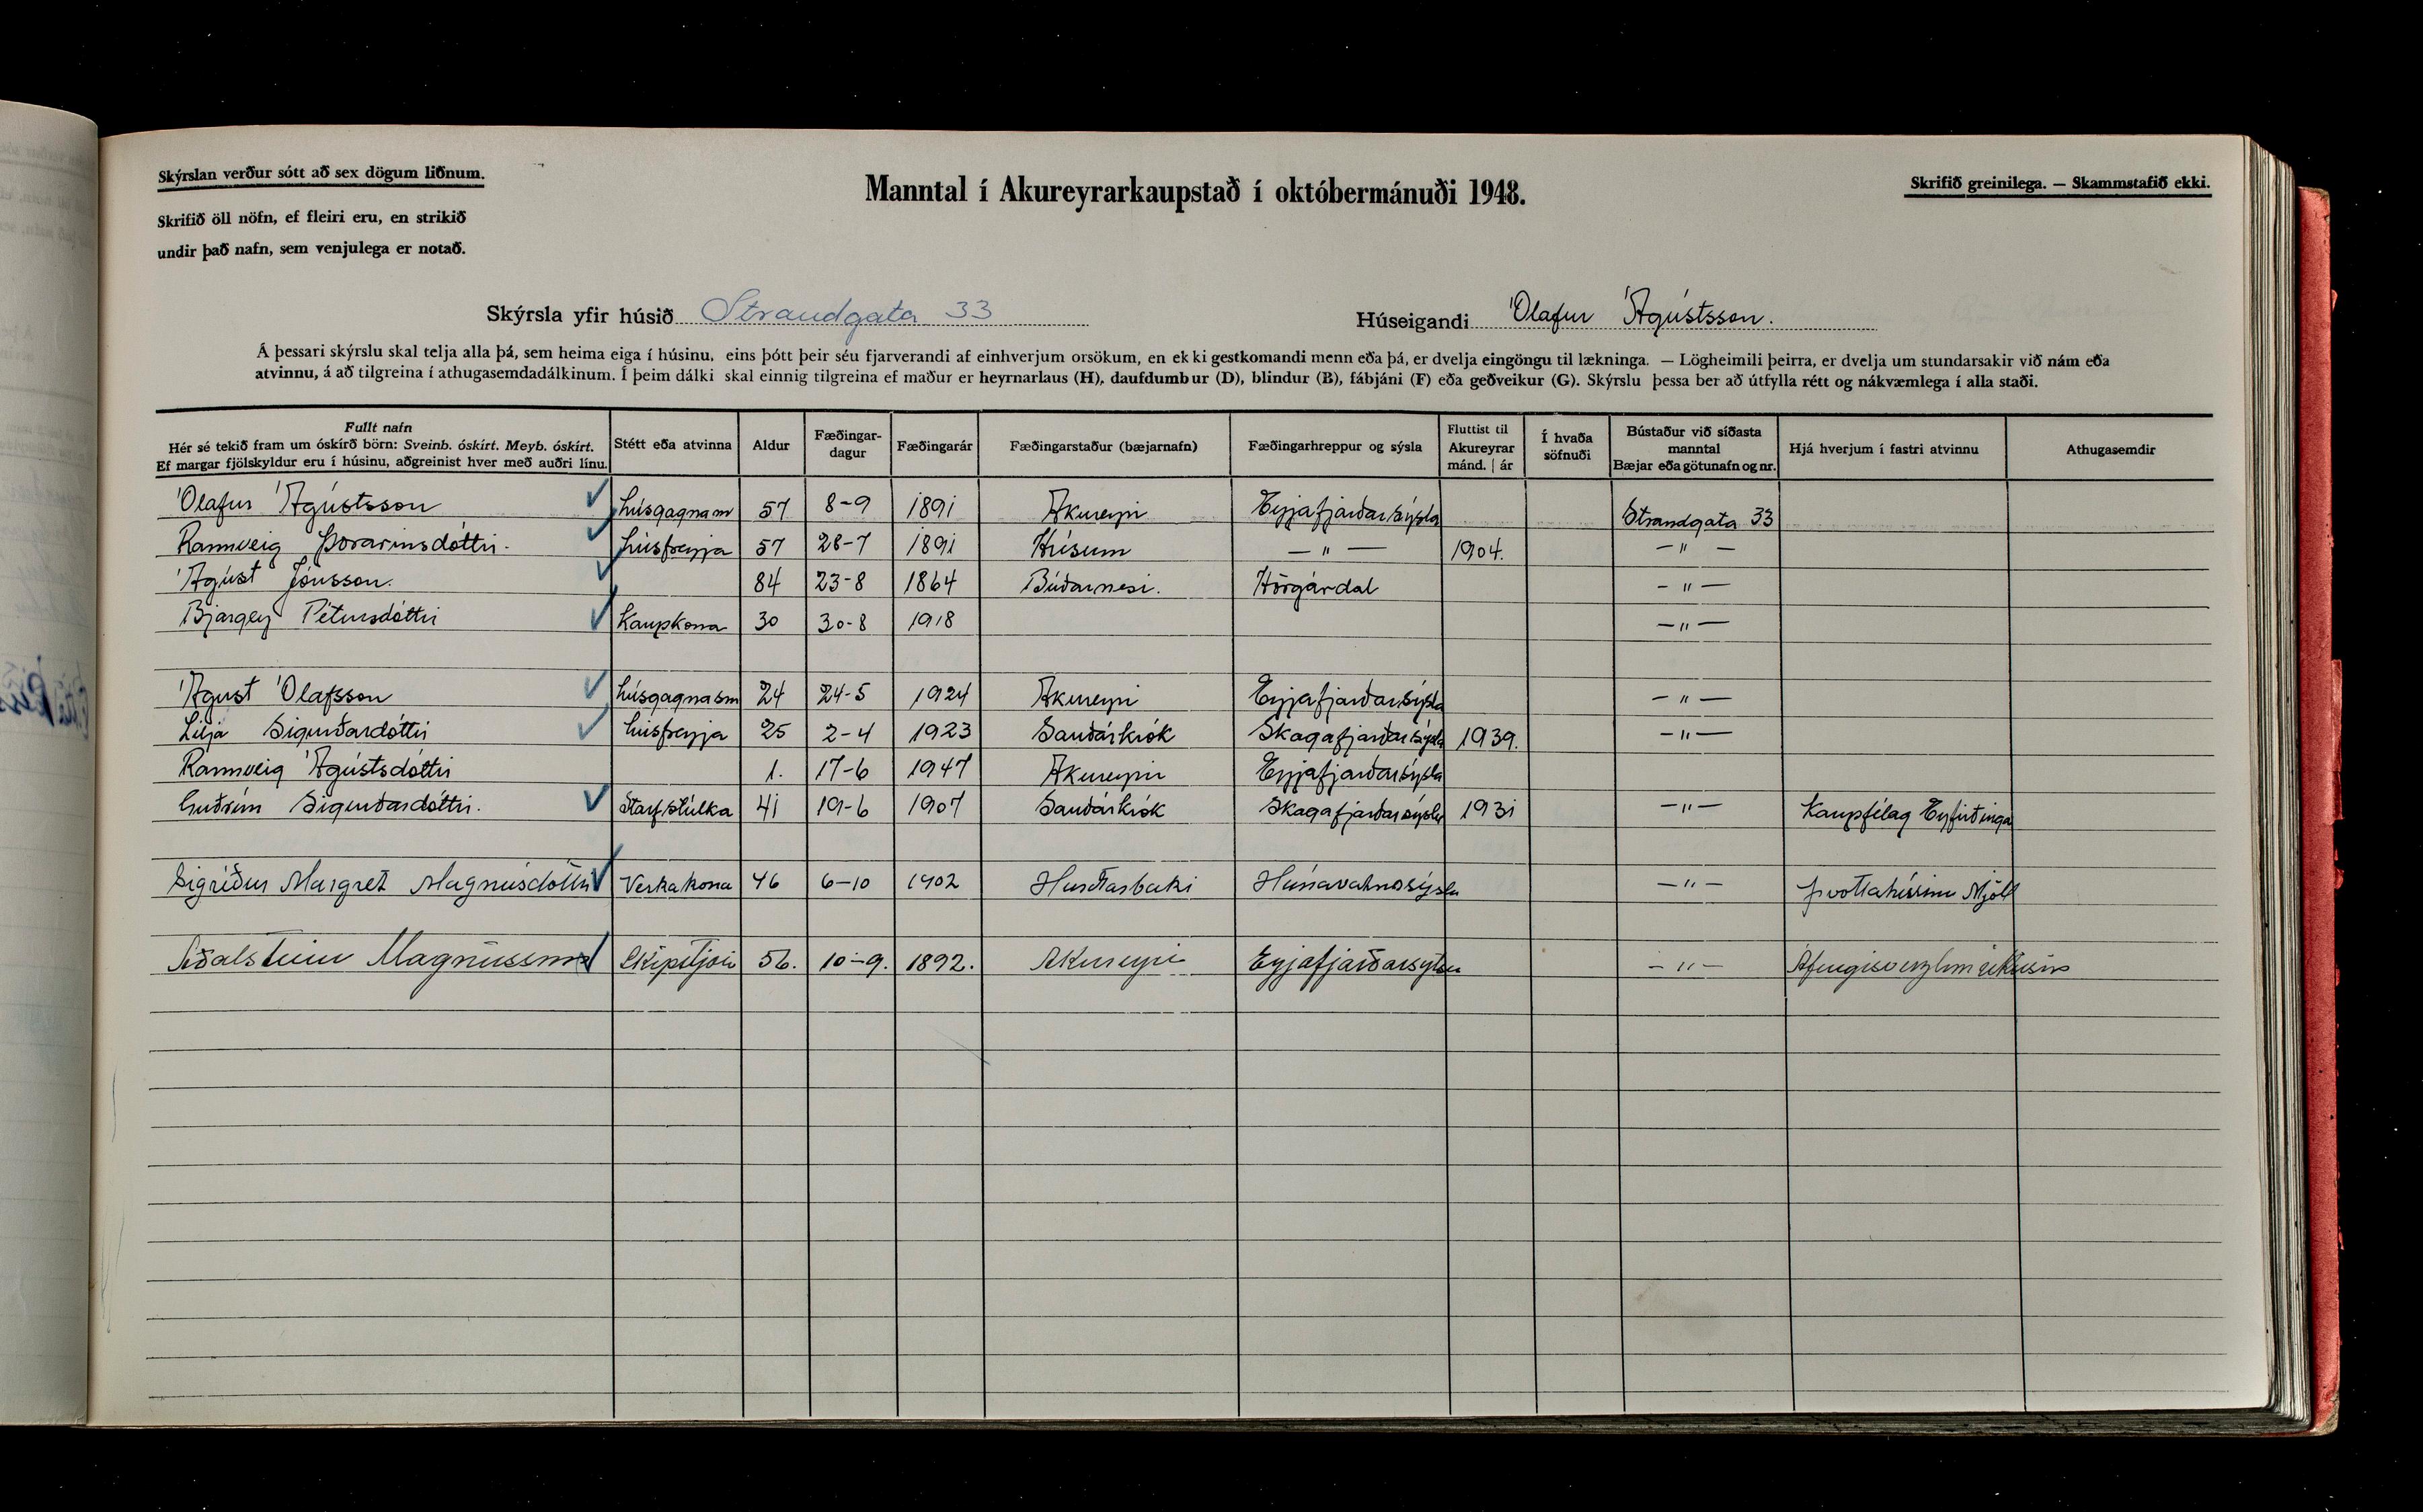 Skýrslan verður sótt að sex dögum liðnum.
Manntal í Akureyrarkaupstað í októbermánuði 1948.
Skrifið greinilega. — Skammstafið ekki.
Skrifið öll nöfn, ef fleiri eru, en strikið
undir það nafn, sem venjulega er notað.
Skýrsla yfir húsið Strandgata 33
Húseigandi Ólafur Ágústsson.
Á þessari skýrslu skal telja alla þá, sem heima eiga í húsinu, eins þótt þeir séu fjarverandi af einhverjum orsökum, en ekki gestkomandi menn eða þá, er dvelja eingöngu til lækninga. — Lögheimili þeirra, er dvelja um stundarsakir við nám eða
atvinnu, á að tilgreina í athugasemdadálkinum. Í þeim dálki skal einnig tilgreina ef maður er heyrnarlaus (H), daufdumbur (D), blindur (B), fábjáni (F) eða geðveikur (G). Skýrslu þessa ber að útfylla rétt og nákvæmlega í alla staði.
Fullt nafn
Hér sé tekið fram um óskírð börn: Sveinb. óskírt. Meyb. óskírt.
Ef margar fjölskyldur eru í húsinu, aðgreinist hver með auðri línu.
Stétt eða atvinna
Aldur
Fæðingar-
dagur
Fæðingarár
Fæðingarstaður (bæjarnafn)
Fæðingarhreppur og sýsla
Fluttist til
Akureyrar
mánd. | ár
Í hvaða
söfnuði
Bústaður við síðasta
manntal
Bæjar eða götunafn og nr.
Hjá hverjum í fastri atvinnu
Athugasemdir
Ólafur Ágústsson húsgagnam 57 8-9 1891 Akureyri Eyjafjarðarsýsla Strandgata 33
Rannveig Þorarinsdóttir. húsfreyja 57 28-7 1891 Húsum — " — 1904. — " —
Ágúst Jónsson. 84 23-8 1864 Búðarnesi. Hörgárdal — " —
Bjargey Pétursdóttir Kaupkona 30 30-8 1918 — " —
Águst Ólafsson húsgagnasm 24 24-5 1924 Akureyri Eyjafjarðarsýsla — " —
Lilja Sigurðardóttir húsfreyja 25 2-4 1923 Sauðárkrók Skagafjarðarsýsla 1939. — " —
Rannveig Ágústsdóttir 1. 17-6 1947 Akureyri Eyjafjarðarsýsla
Guðrún Sigurðardóttir. Starfstúlka 41 19-6 1907 Sauðárkrók Skagafjarðarsýsla 1931 — " — Kaupfélag Eyfirðinga
Sigríður Margret Magnúsdóttir Verkakona 46 6-10 1902 Hurðarbaki Húnavatnssýsla — " — Þvottahúsinu Mjöll
Aðalsteinn Magnússon Skipstjóri 56. 10-9. 1892. Akureyri Eyjafjarðarsýslu — " —